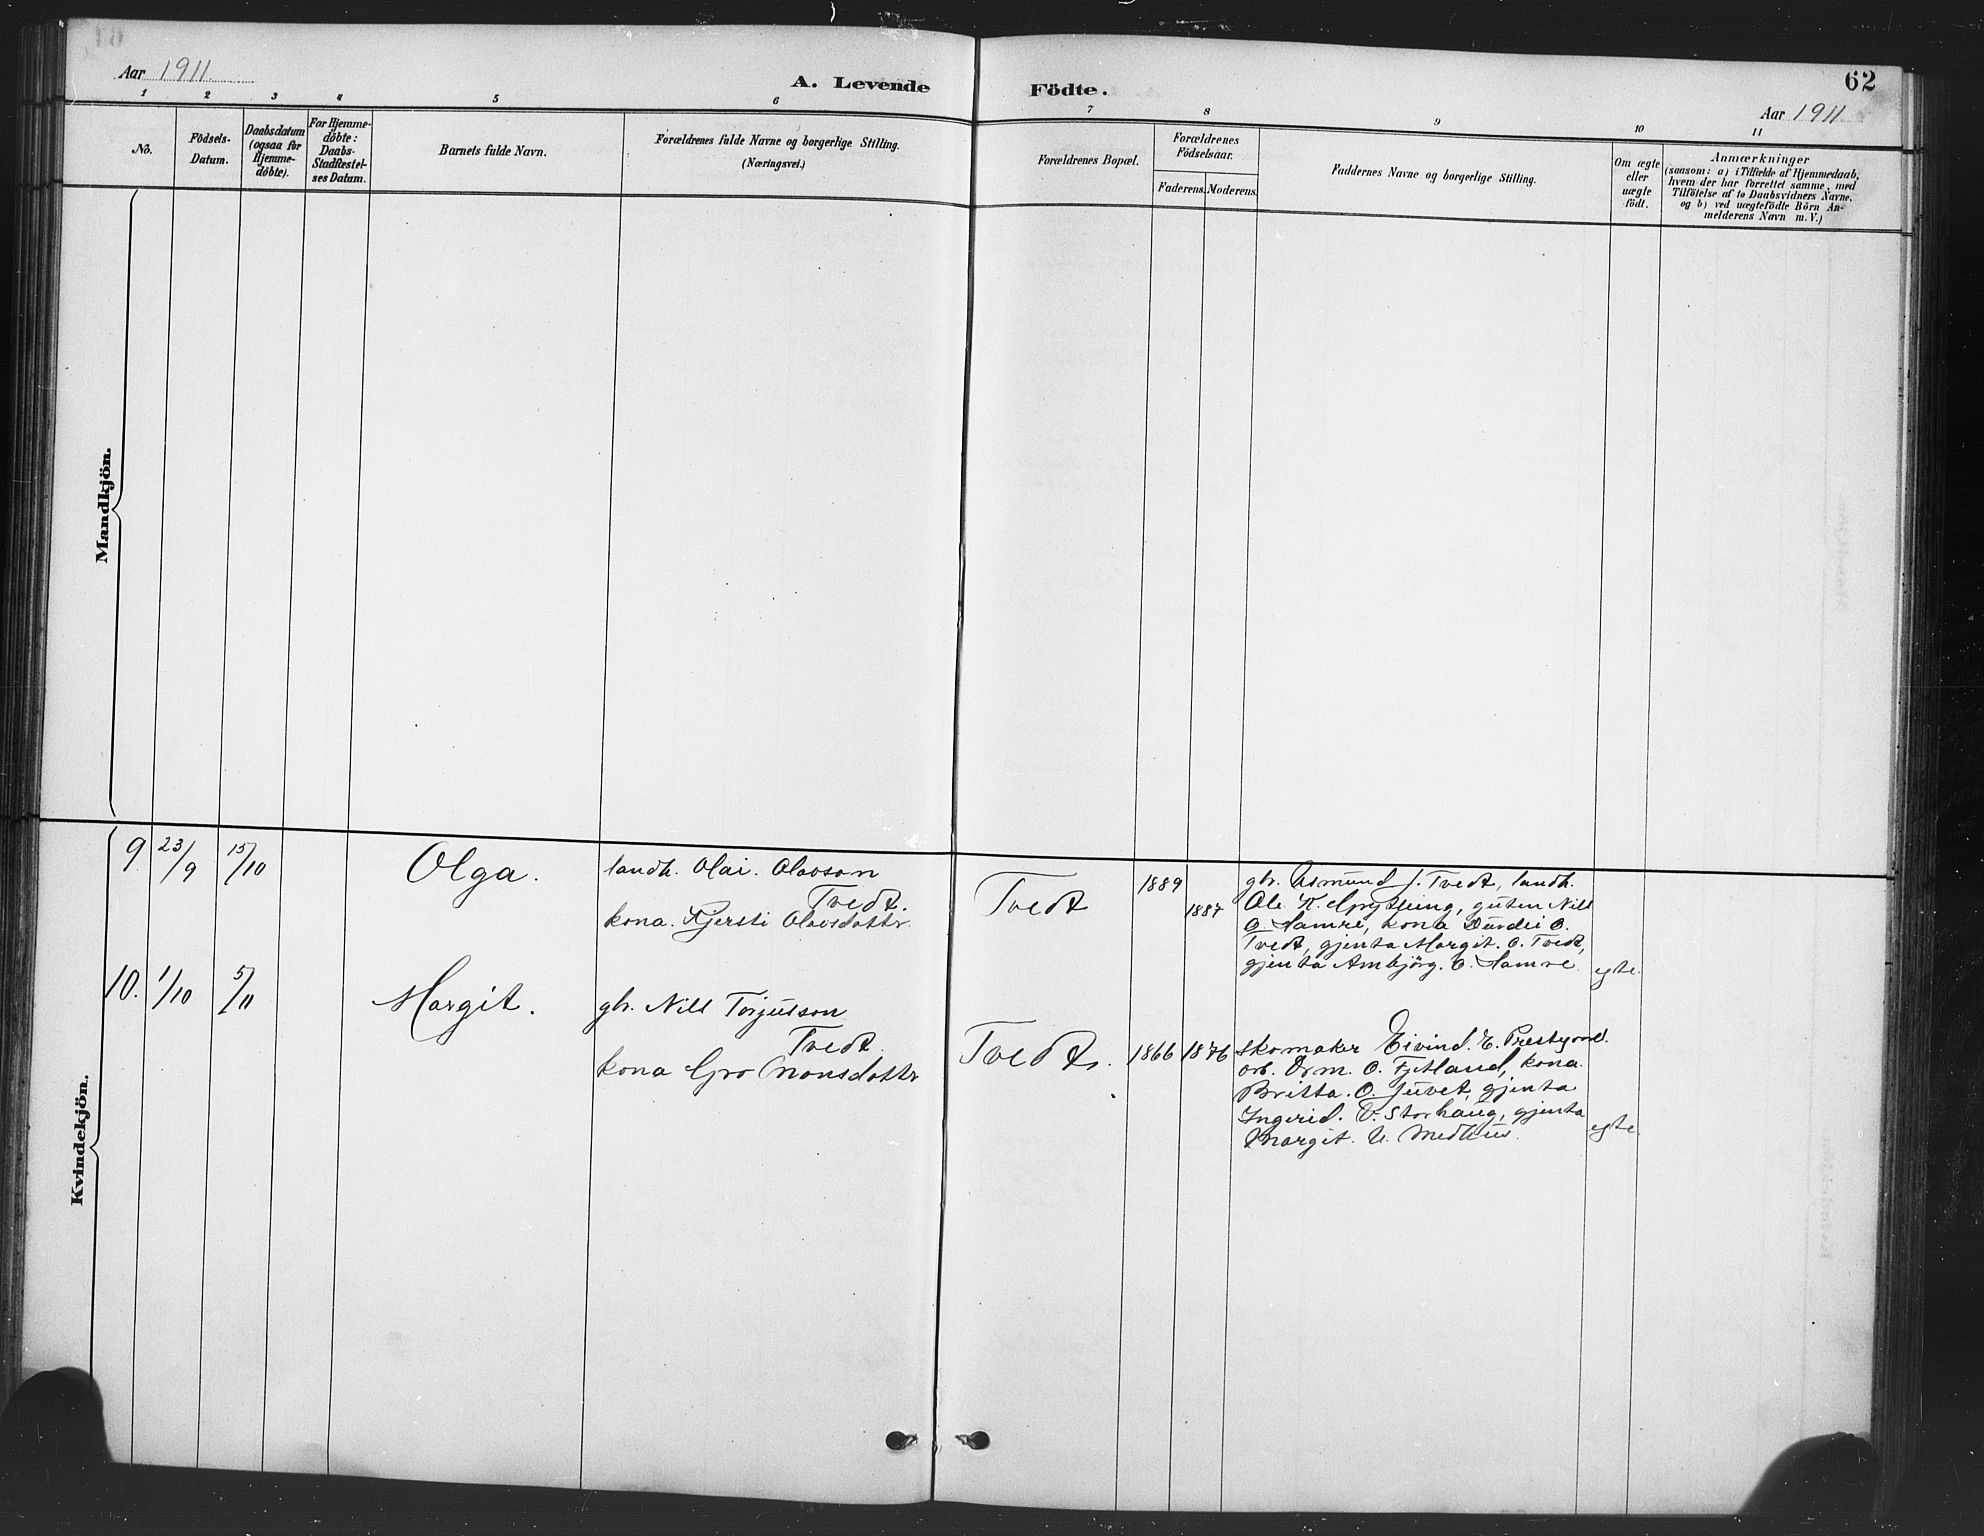 Aar 1911.
A. Levende Födte.
62
Aar 1911
1 2 3 4 5 6 7 8 9 10 11
No.
Födsels-
Datum.
Daabsdatum
(ogsaa for
Hjemme-
döbte).
For Hjemme-
döbte:
Daabs-
Stadfæstel-
ses Datum.
Barnets fulde Navn.
Forældrenes fulde Navne og borgerlige Stilling.
(Næringsvei.)
Forældrenes Bopæl.
Forældrenes
Födselsaar.
Faderens. Moderens.
Faddernes Navne og borgerlige Stilling.
Om ægte
eller
uægte
födt.
Anmærkninger
(saasom: a) i Tilfælde af Hjemmedaab,
hvem der har forrettet samme, med
Tilföielse af to Daabsvidners Navne,
og b) ved uægtefödte Börn An-
melderens Navn m. V.)
Mandkjön.
Kvindekjön.
9. 23/9 15/10
Olga.
landh. Olai. Olavson
Tvedt.
kona. Kjersti Olavsdottr.
Tvedt
1889
1887
gbr. Asmund J. Tvedt, landh.
Ole. K. guten Nils
O. Hamre, kona Durdei O.
Tvedt, gjenta Margit. O. Tvedt,
gjenta Ambjörg. O. Hamre.
egte.
10. 1/10 5/11
Margit.
gbr. Nils Torjusson
Tvedt.
kona Gro Monsdottr
Tvedt.
1866 1876
skomaker Eivind. E. Prestgard.
arb. Orm. O. Fjetland, kona
Britta. O. Juvet, gjenta
Ingerid. V. Storhaug, gjenta
Margit. N. Medhus.
egte.